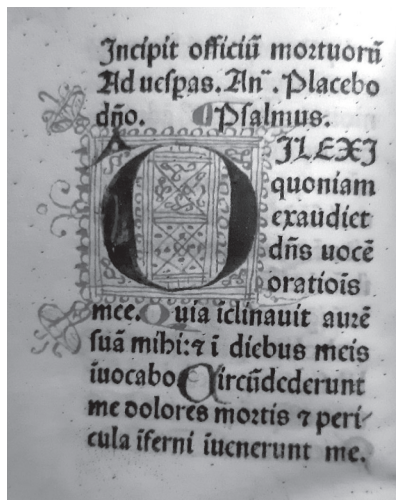 Incipit officiū mortuorū
Ad uespas. An̄. Placebo
dño. Psalmus.
DILEXI
quoniam
exaudiet
dñs uocē
oratiōis
mee. Quia īclinauit aurē
suā mihi: ⁊ ī diebus meis
īuocabo Circūdederunt
me dolores mortis ⁊ peri-
cula īferni īuenerunt me.